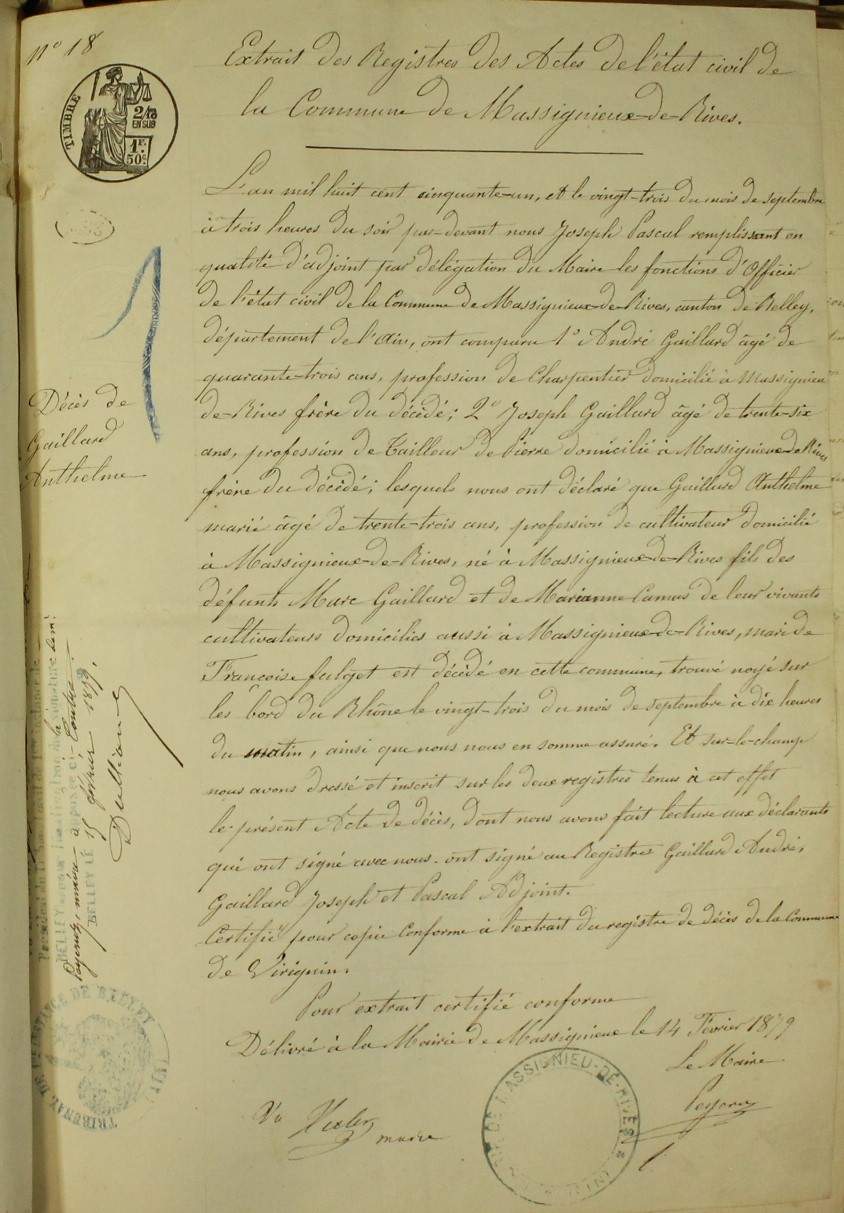 n° 18
TIMBRE
2/10
EN SUS
1F.
50c
Extrait des Registres des Actes de l'état civil de
la Commune de Massignieux-de-Rives.
L'an mil huit cent cinquante-un, et le vingt-trois du mois de septembre
à trois heures du soir par-devant nous Joseph Pascal remplissant en
qualité d'adjoint par délégation du Maire les fonctions d'Officier
de l'état civil de la Commune de Massignieux-de-Rives, canton de Belley,
département de l'Ain, ont comparu 1° André Gaillard âgé de
quarante-trois ans, profession de Charpentier domicilié à Massignieu
de-Rives frère du décédé; 2° Joseph Gaillard âgé de trente-six
ans, profession de Tailleur de Pierre domicilié à Massignieux-de-Rives
frère du décédé; lesquels nous ont déclaré que Gaillard Anthelme
marié âgé de trente-trois ans, profession de cultivateur domicilié
à Massignieux-de-Rives, né à Massignieux-de-Rives fils des
défunts Marc Gaillard et de Marianne Camus de leur vivants
cultivateurs domiciliés aussi à Massignieux-de-Rives, mari de
Françoise fulget est décédé en cette commune, trouvé noyé sur
les bord du Rhône le vingt-trois du mois de septembre à dix heures
du matin, ainsi que nous nous en somme assuré. Et sur-le-champ
nous avons dressé et inscrit sur les deux registres tenus à cet effet
le présent Acte de décès, dont nous avons fait lecture aux déclarants
qui ont signé avec nous. ont signé au Registres Gaillard André,
Gaillard Joseph et Pascal Adjoint.
Certifié pour copie conforme à l'extrait du registre de décès de la Commune
de Virignin.
Pour extrait certifié conforme
Délivré à la Mairie de Massignieux le 14 Février 1879
Le Maire
Décès de
Gaillard
Anthelme
maire
Vu
MASSIGNIEU-DE-RIVES
BELLEY LE 15 février 1879.
TRIBUNAL DE 1ÈRE INSTANCE DE BELLEY